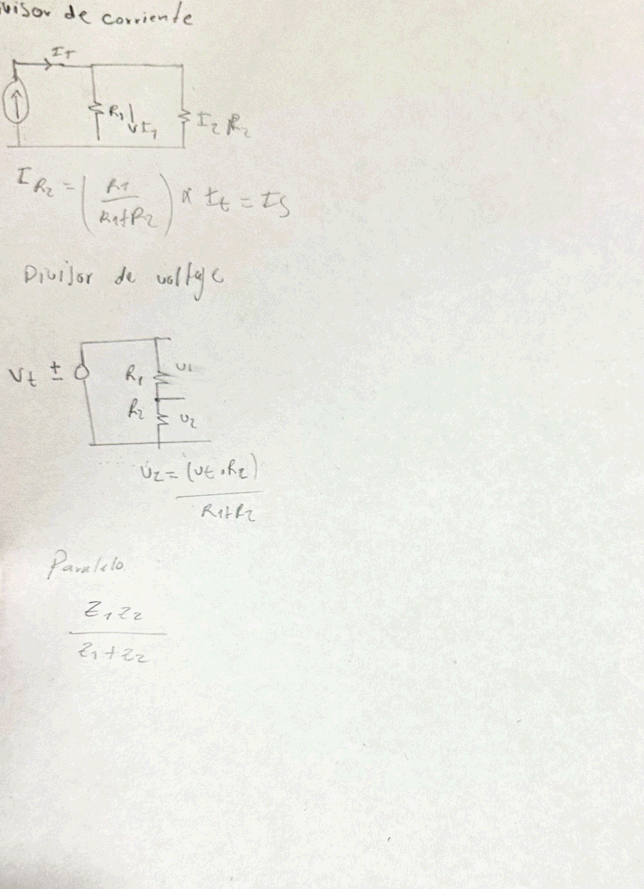 visor de corriente
IT
R1 I1 I2 R2
IR2 = (R1 / R1+R2) x It = IS
Divisor de voltaje
Vt ± R1 U1
R2 U2
U2 = (Ut . R2)
R1+R2
Paralelo
Z1 Z2
Z1 + Z2